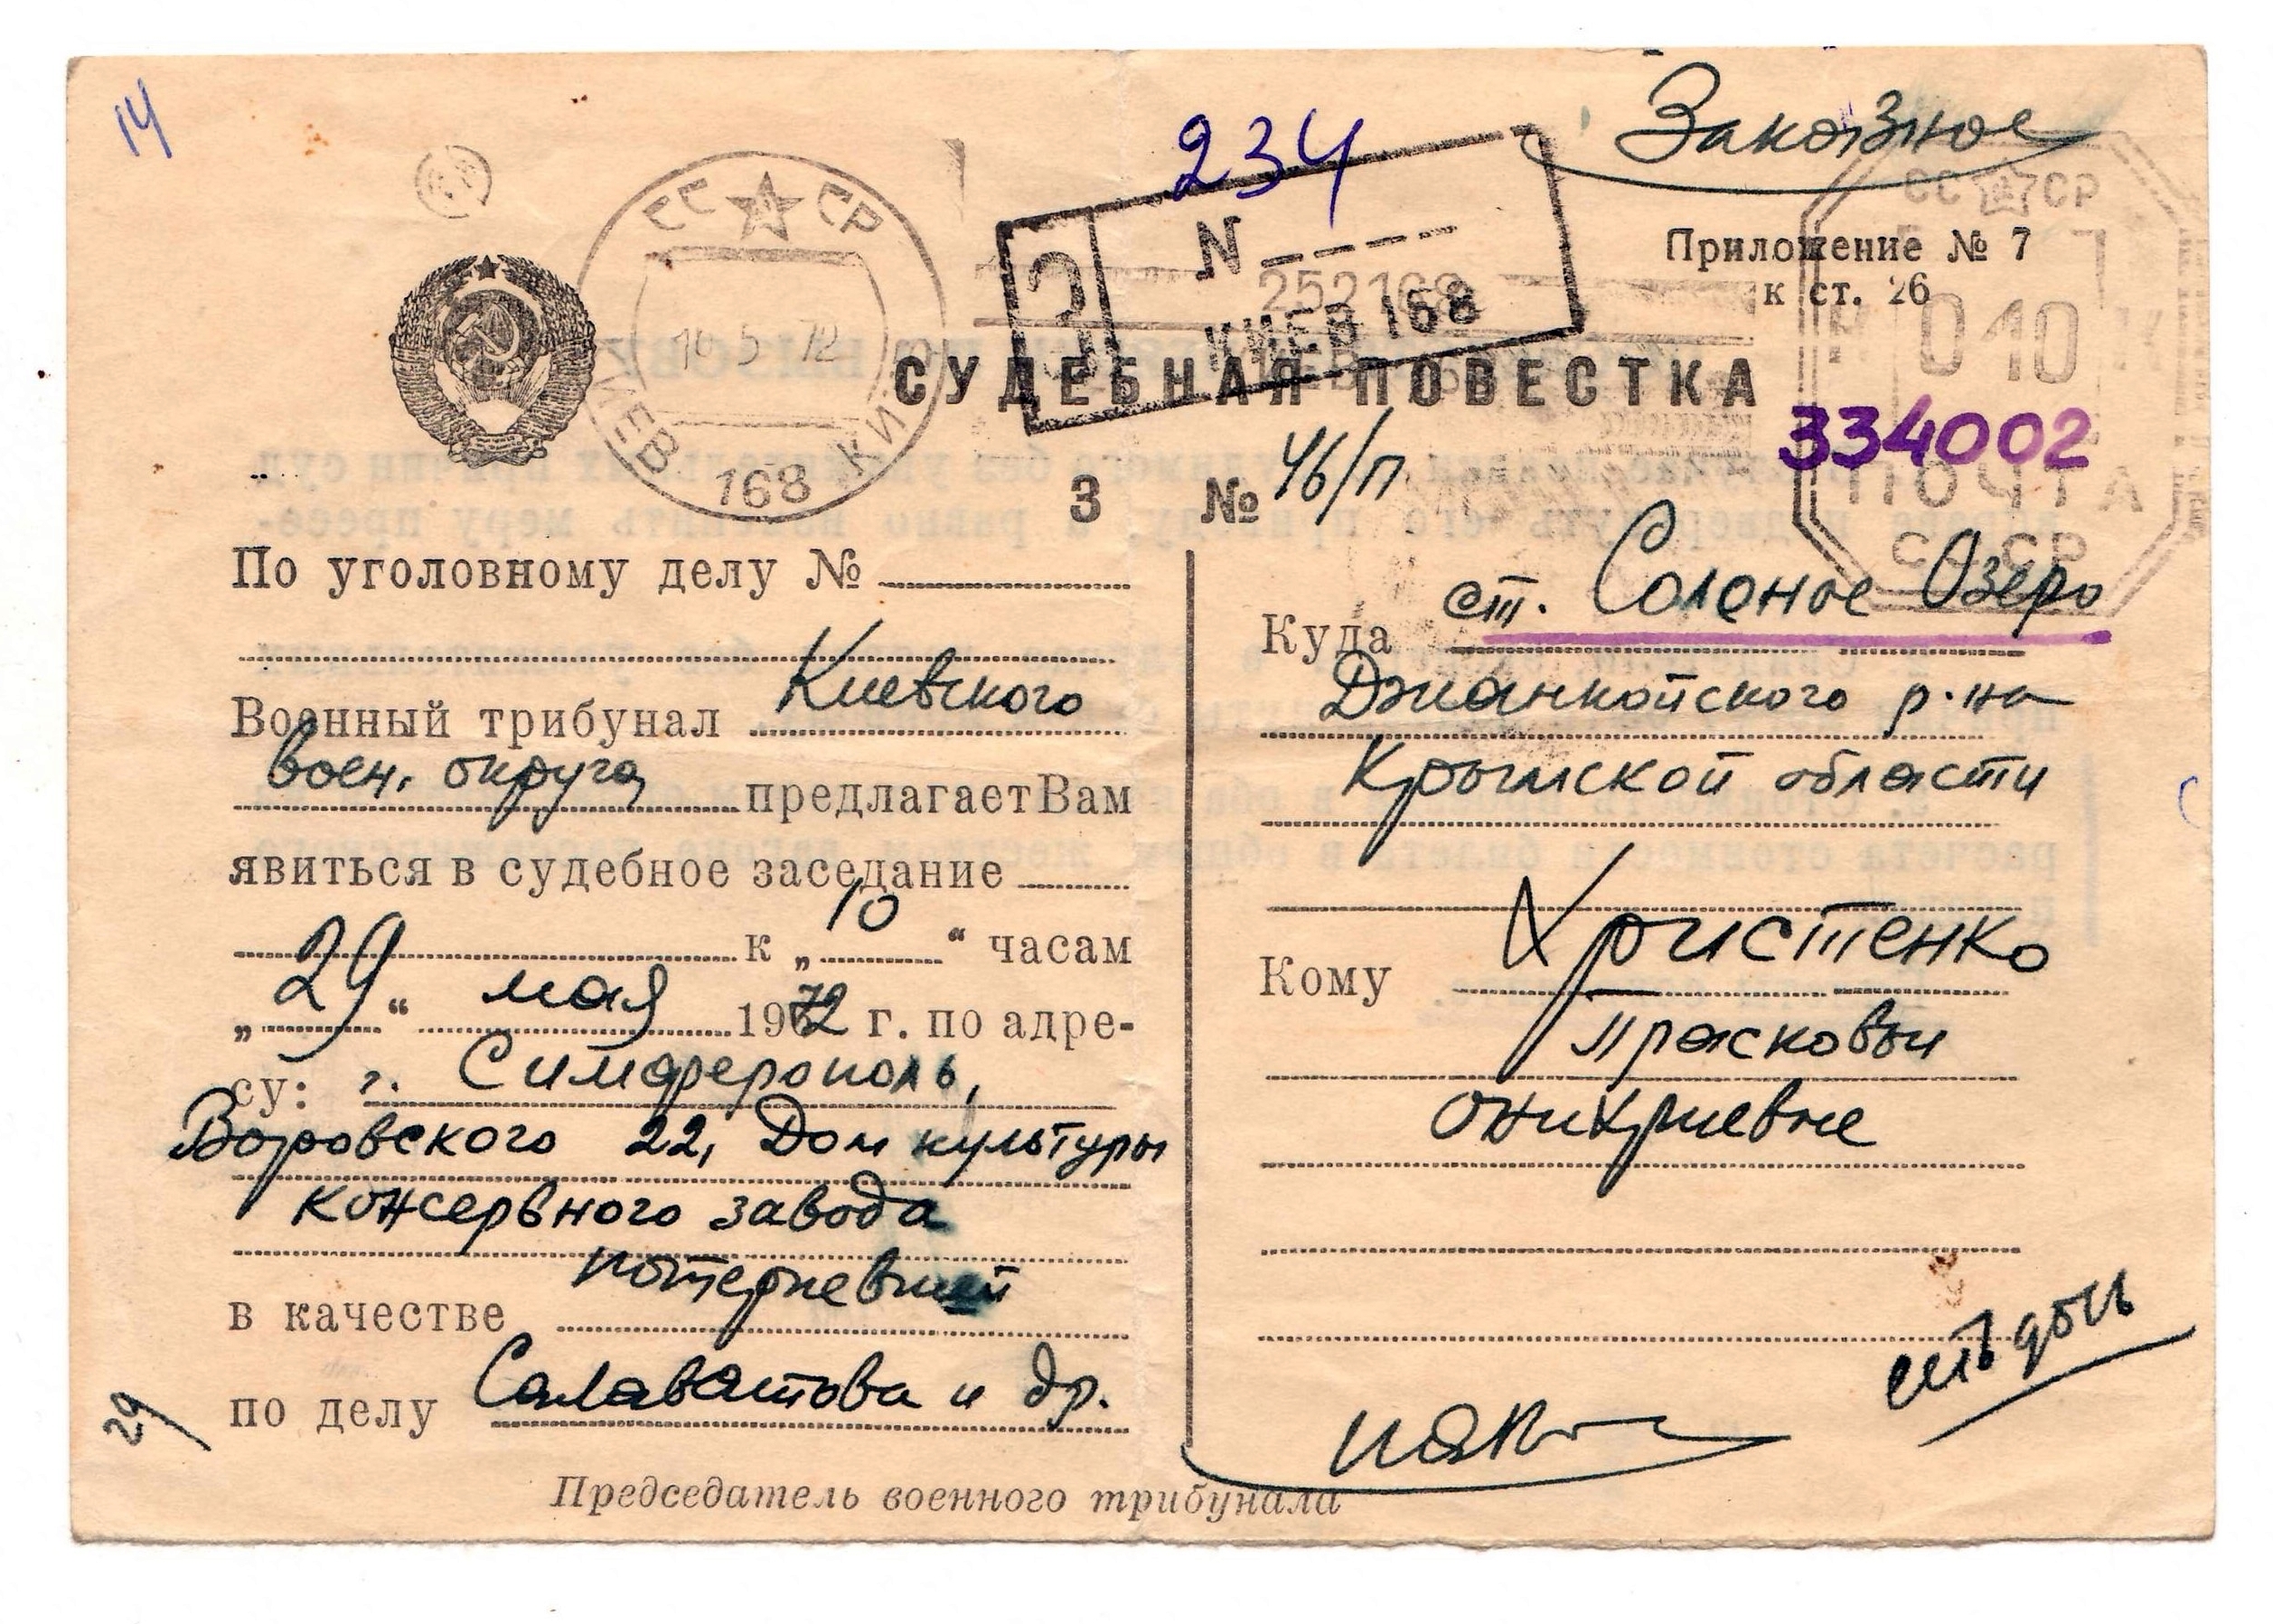 14
234
Заказное
СС СР
N
252168
КИЕВ 168
З
СС СР
Приложение № 7
к ст. 26
10 5 72
010
КИЕВ 168 КИЇВ
СУДЕБНАЯ ПОВЕСТКА
334002
ПОЧТА
СССР
3 № 46/п
По уголовному делу №
Военный трибунал Киевского
воен. округа предлагает Вам
явиться в судебное заседание
к „10“ часам
„29“ мая 1972 г. по адре-
су: г. Симферополь,
Воровского 22, Дом культуры
консервного завода
в качестве потерпевшей
по делу Салаватова и др.
29
Куда ст. Соленое Озеро
Джанкойского р-на
Крымской области
Кому Христенко
Прасковьи
Оникриевне
есть дочь
Председатель военного трибунала